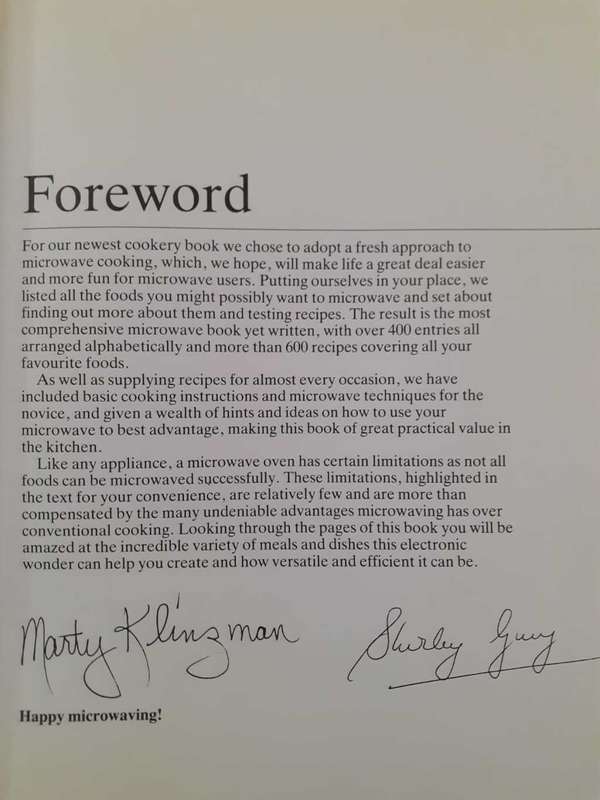 Foreword
For our newest cookery book we chose to adopt a fresh approach to
microwave cooking, which, we hope, will make life a great deal easier
and more fun for microwave users. Putting ourselves in your place, we
listed all the foods you might possibly want to microwave and set about
finding out more about them and testing recipes. The result is the most
comprehensive microwave book yet written, with over 400 entries all
arranged alphabetically and more than 600 recipes covering all your
favourite foods.
As well as supplying recipes for almost every occasion, we have
included basic cooking instructions and microwave techniques for the
novice, and given a wealth of hints and ideas on how to use your
microwave to best advantage, making this book of great practical value in
the kitchen.
Like any appliance, a microwave oven has certain limitations as not all
foods can be microwaved successfully. These limitations, highlighted in
the text for your convenience, are relatively few and are more than
compensated by the many undeniable advantages microwaving has over
conventional cooking. Looking through the pages of this book you will be
amazed at the incredible variety of meals and dishes this electronic
wonder can help you create and how versatile and efficient it can be.
Marty Klinzman Shirley Guy
Happy microwaving!